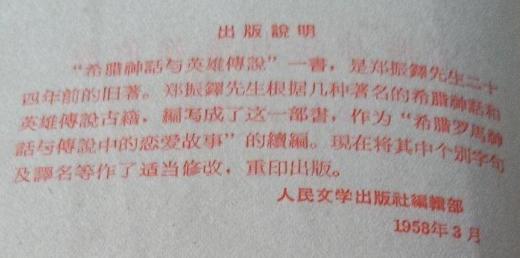 出版說明
“希腊神話与英雄傳說”一書，是郑振鐸先生二十
四年前的旧著。郑振鐸先生根据几种著名的希腊神話和
英雄傳說古籍，編写成了这一部書，作为“希腊罗馬神
話与傳說中的恋爱故事”的續編。現在将其中个别字句
及譯名等作了适当修改，重印出版。
人民文学出版社編輯部
1958年3月